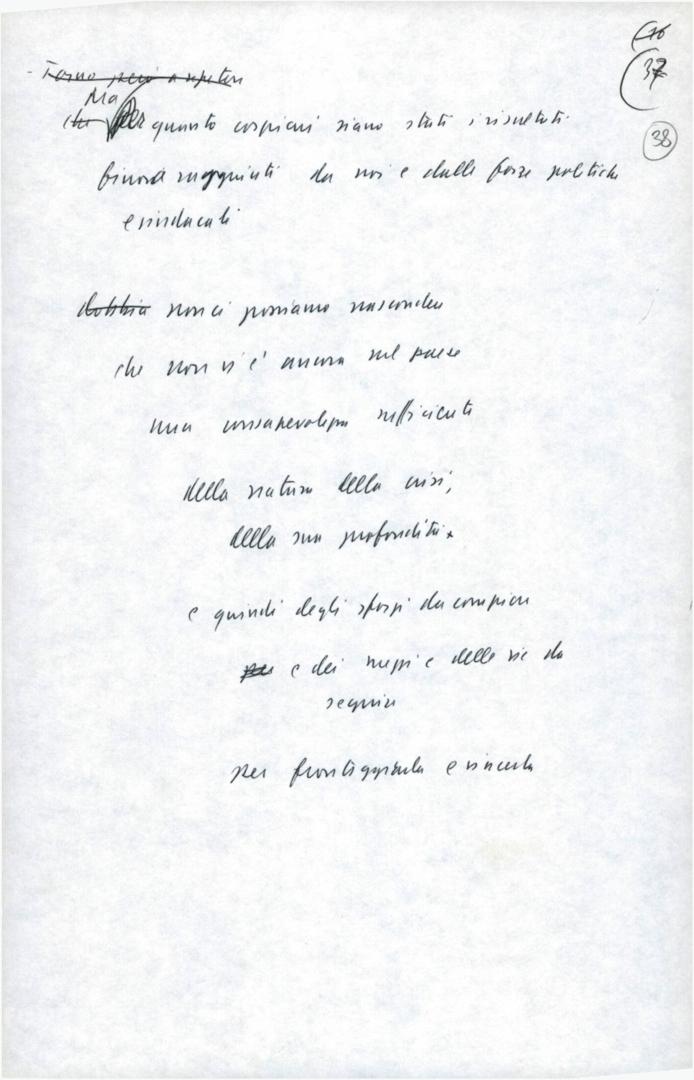 (36
(37
38
- Torno però a ripetere
Ma
che Per quanto cospicui siano stati i risultati
finora raggiunti da noi e dalle forze politiche
e sindacali
dobbia non ci possiamo nascondere
che non vi è ancora nel paese
una consapevolezza sufficiente
della natura della crisi,
della sua profondità
e quindi degli sforzi da compiere
per e dei mezzi e delle vie da
seguire
per fronteggiarla e vincerla